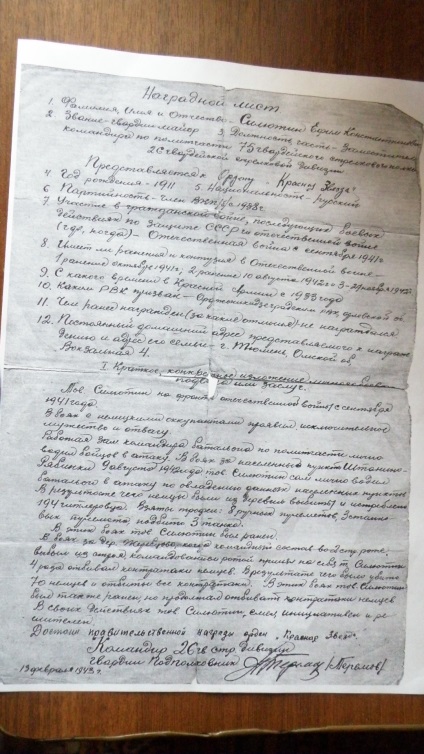 Наградной лист
1. Фамилия, Имя и Отчество - Силютин Ефим Константинович
2. Звание - гвардии майор 3. Должность часть - Заместитель
командира по политчасти 75 гвардейского стрелкового полка
26 гвардейской стрелковой дивизии
Представляется к Ордену "Красная Звезда"
4. Год рождения - 1911 5. Национальность - русский
6. Партийность - член ВКП(б) с 1938г.
7. Участие в гражданской войне, последующих боевых
действиях по защите СССР и отечественной войне
(где, когда) - Отечественная война с сентября 1941г.
8. Имеет ли ранения и контузии в Отечественной войне -
1 ранение октябре 1941г, 2 ранение 10 августа 1942г 3 -
9. С какого времени в Красной Армии с 1933 года
10. Каким РВК призван -
11. Чем ранее награжден (за какие отличия) - не награждался
12. Постоянный домашний адрес представляемого к награж
дению и адрес его семьи - г. Тюмень, Омской об
Вокзальная 4.
I. Краткое, конкретное изложение личного боев
подвига или заслуг.
Тов. Силютин на фронте отечественной войны с сентября
1941 года.
В боях с немецкими оккупантами проявил исключительное
мужество и отвагу
Работая зам. командира батальона по политчасти лично
водил бойцов в атаку. В боях за населенный пункт
9 августа тов Силютин сам лично водил
батальон в атаку по овладению данных населенных пунктов
В результате чего немцы были из деревни выбиты и истреблено
194 гитлеровца. Взяты трофеи: 8 ручных пулеметов, 3 станко
вых пулемета подбито 3 танка.
В этих боях тов Силютин был ранен.
В боях за дер. командный состав во всей роте,
выбыл из строя командование ротой принял на себя т. Силютин
4 раза отбивал контратаки немцев. В результате чего было убито
70 немцев и отбиты все контратаки. В этих боях тов Силютин
был также ранен, но продолжал отбивать контратаки немцев
В своих действиях тов Силютин, смел инициативен и ре
шителен.
Достоин правительственной награды орден "Красной Звезды".
Командир 26 гв. стр. дивизии
гвардии Подполковник
19 февраля 1943 г.